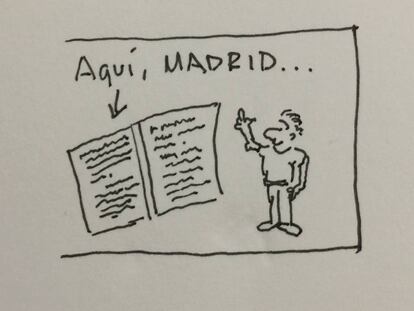 Aquí, MADRID...